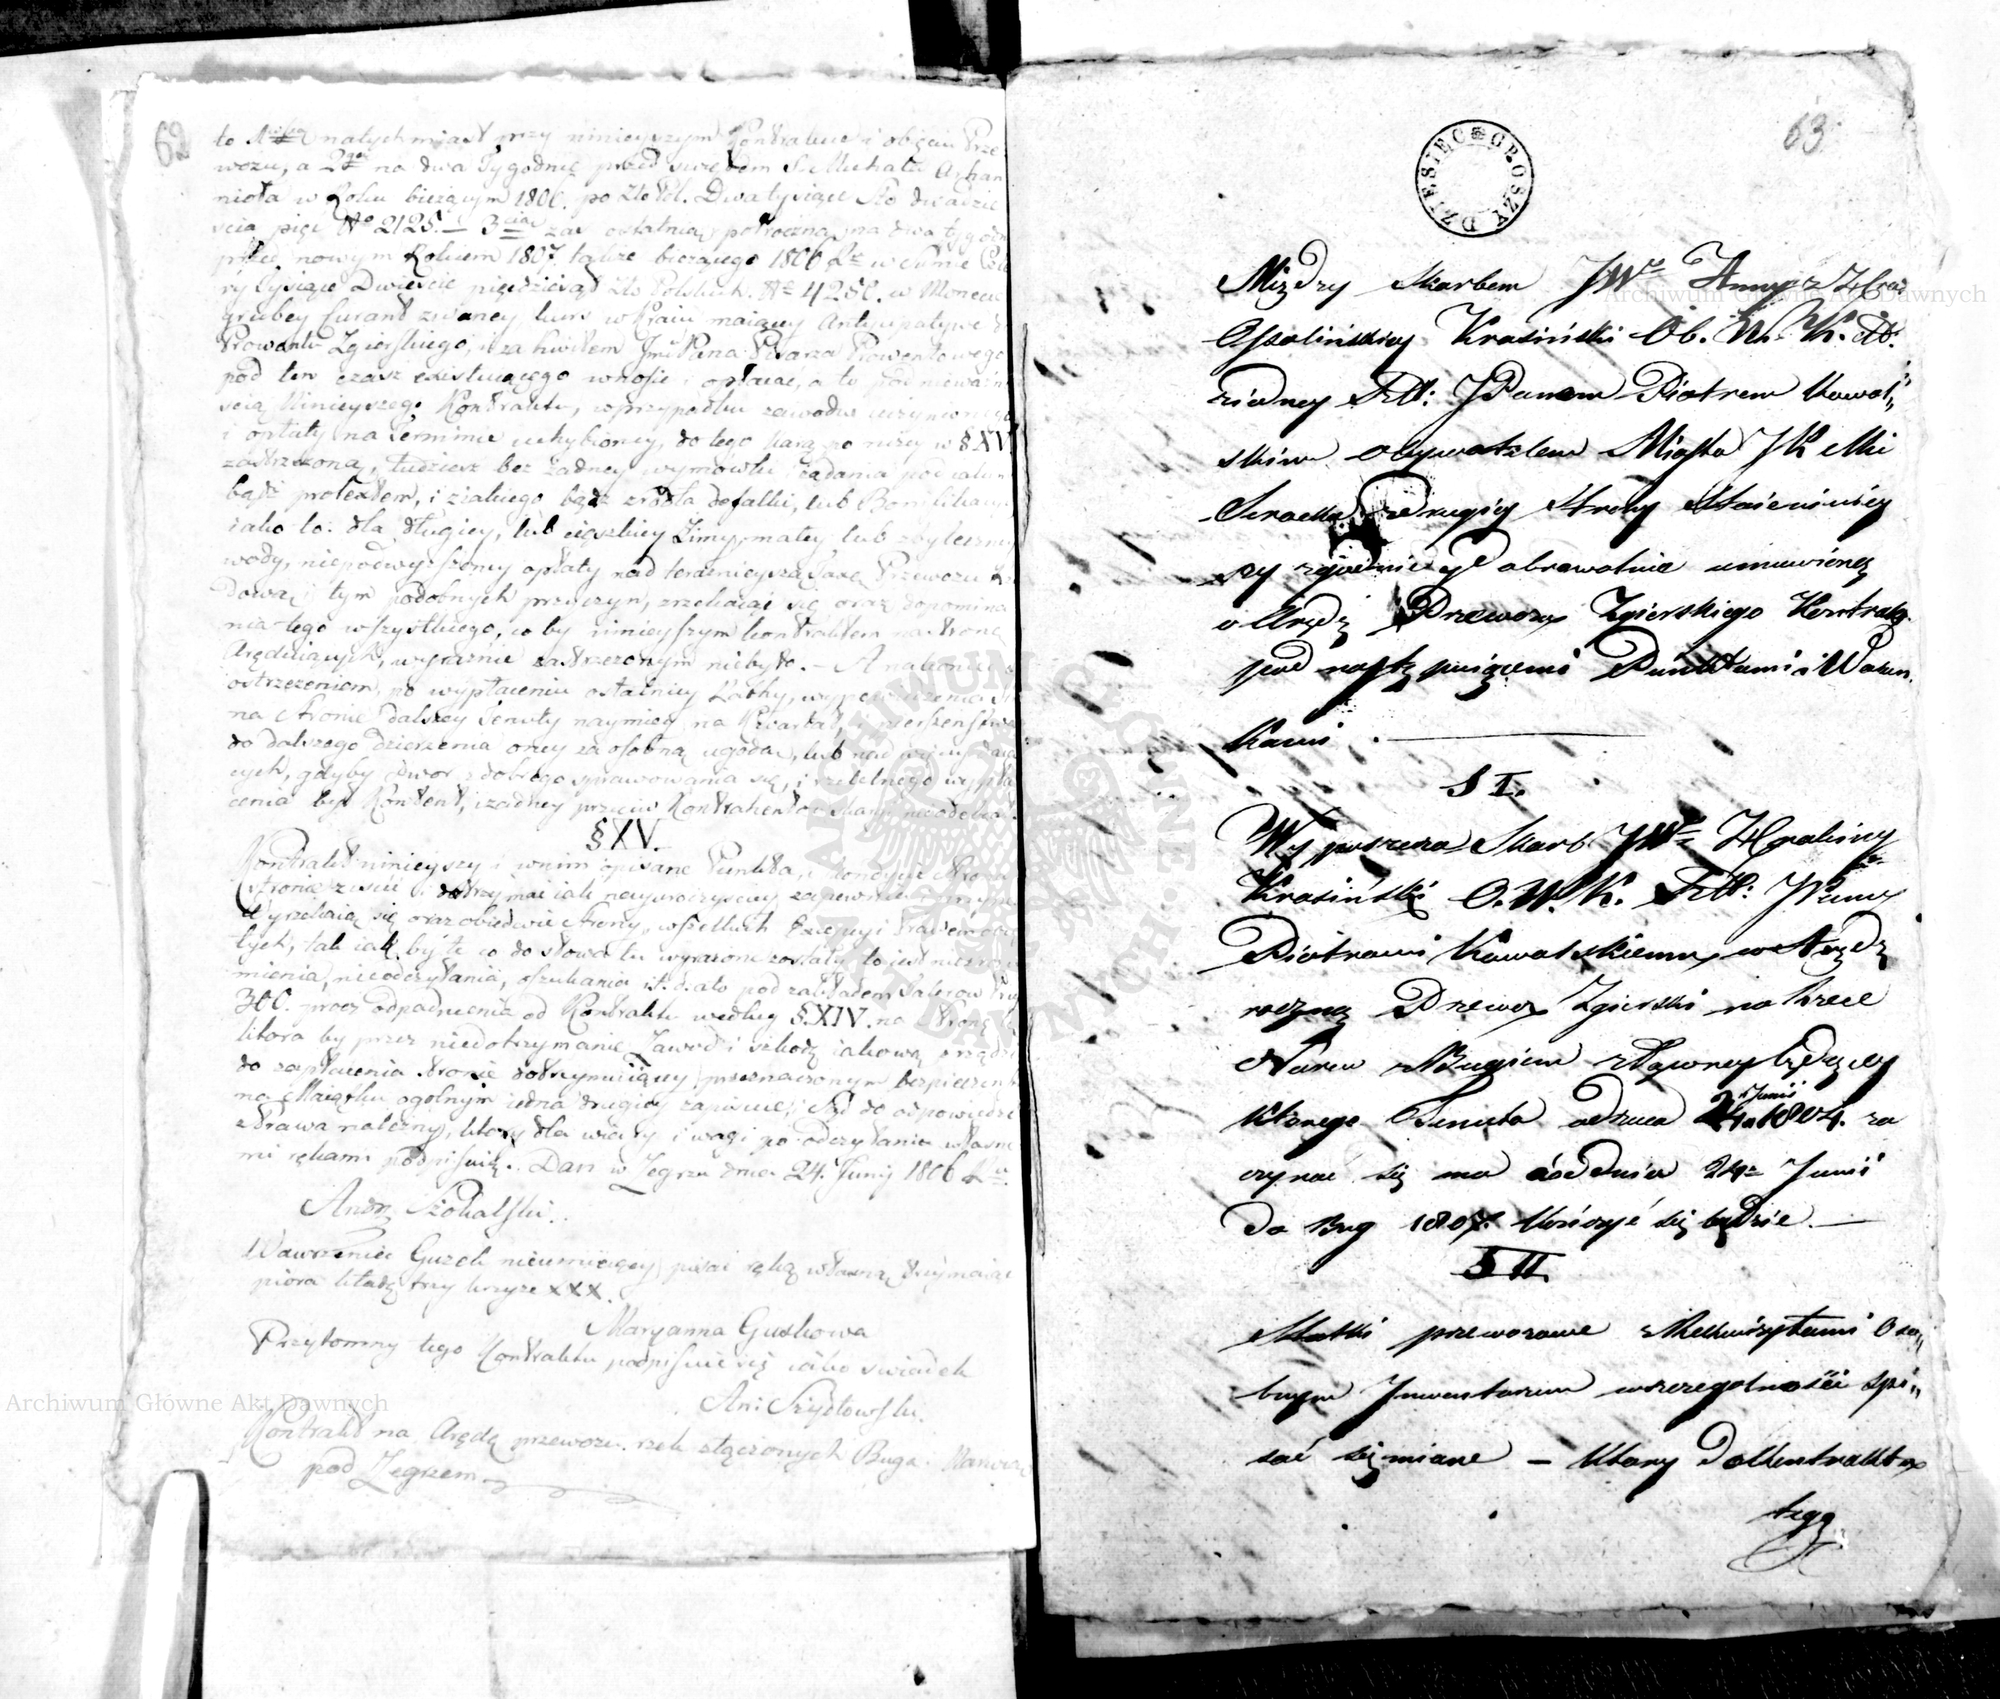 62
to 1sza natychmiast przy ninieyszym Kontrakcie i obięciu Prze
wozu, a 2ga na dwa Tygodnie przed swiętem S. Michała Archan
nioła w Roku bieżącym 1806. po Zło Pol. Dwa tysiące Sto dwadzie
scia pięc No 2125. — 3cią zas ostatnią połroczną na dwa tygod
przed nowym Rokiem 1807 także bieżącego 1806 Ru w sumie Czte
ry tysiące Dwiescie pięcdziesiąt Zło Polskich No 4250. w Monecie
grubey Curant zwaney kurs w Kraiu maiącey Antycypatywe d
Prowentu Zgierskiego, i za kwitem Jmć Pana Pisarza Prowentowego
pod ten czas existuiącego wnosic i opłacac, a to pod nieważno
scią Ninieyszego Kontraktu, w przypadku zawodu
i opłaty na Terminie uchybioney, do tego karą po nizey w § XV
zastrzeżoną, tudziesz bez żadney wymowki żądania pod iakim
bądź protextem, i z iakiego bądź zrzodła defalki, lub Bonifikacyi
iako to: dla długiey, lub cięszkiey Zimy, małey lub zbyteczney
wody, niepodwyszoney opłaty nad teraznieyszą Taxę Przewozu
i tym podobnych przyczyn, zrzekaiąc się oraz dopomina
nia tego wszystkiego, co by ninieyszym kontraktem na stronę
Aręduiących, wyraznie zastrzeżonym niebyło. — A nakoniec z
ostrzeżeniem, po wypłaceniu ostatniey Ratky, wypowiedzenia
na stronie dalszey Tenuty naymiey na Kwartał, pierszenstwo
do dalszego dzierżenia oney za osobną ugodą, lub nad
cych, gdyby Dwor z dobrego sprawowania się, i rzetelnego wypła
cenia był Kontent, i żadney przeciw Kontrahentow skargi nieodebrał.
§ XV.
Kontrakt ninieyszy i w nim opisane Punkta, i Kondycye Strona
Stronie ziscic i dotrzymac iak nayuroczysciey zapewnia
Wyrzekaią się oraz obiedwie strony, wszelkich Excepcyi Prawem
tych, tak iak by te co do słowa tu wyrażone zostały, to iest niezro
mienia, nieodczytania, oszukania i t. d. a to pod zakładem Talerow
300. procz odpadnienia od Kontraktu według § XIV. na stronę tę
ktora by przez niedotrzymanie Zawod i szkodę iakową zrządzi
do zapłacenia stronie dotrzymuiącey przeznaczonym bezpieczens
na Maiątku ogolnym iedna drugiey zapisuie, i Sąd do odpowiedzi
z Prawa należny, ktory dla wiary i wagi po odczytaniu własne
mi rękami podpisuią. Dan w Zegrzu dnia 24. Junij 1806 Ru.
Andrz Szokalski.
Wawrzeniec Guzek nieumieięcy pisac ręką własną trzymaiąc
piora kładę trzy krzyże XXX.
Maryanna Guzkowa
Przytomny tego Kontraktu podpisuie się iako swiadek
An: Szydłowski.
Kontrakt na Arędę przewozu rzek złączonych Buga i Narwi
pod Zegrzem
63
DZIESIĘC GROSZY
Między Skarbem JWey Anny z Hrab
Ossolińskiey Krasińskiey Ob. W. K.
ziedney a JPanem Piotrem Kowal„
skim obywatelem Miasta JK Mci
Serocka z drugiey Strony Staienieiéy
szy zgodnie y dobrowolnie umuwioney
o Arędę Przewozu Zgierskiego Kontrakt
pod następuiącemi Punktami i Warun
kami. —
§ I.
Wypuszcza Skarb JWey Hrabiny
Krasińskiey O. W. K. JPanu
Piotrowi Kowalskiemu w Arędę
roczną Przewoz Zgierski na Rzece
Narwi z Bugiem Spławney będącey
ktorego Tenuta od zaca 24 Junii 1804. za
czynac się ma ode Dnia 24 Junii
do Roku 1807. kończyć się będzie. —
§ II.
Statki przewozowe z Rekwizytami Oso„
bnym Inwentarzem w szczegolności spi„
sać się miane — ktory do Kontraktu
tego